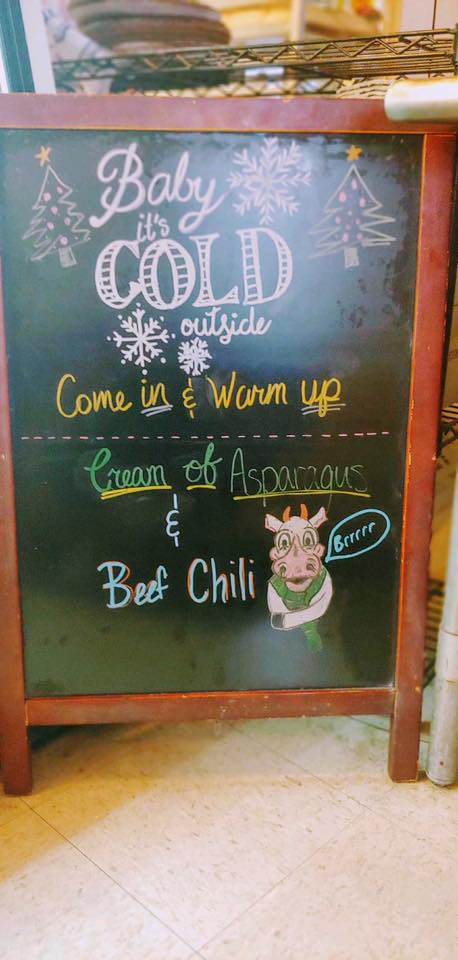 Baby
it's
COLD
outside
Come in & Warm up
Cream of Asparagus
&
Beef Chili
Brrrrr